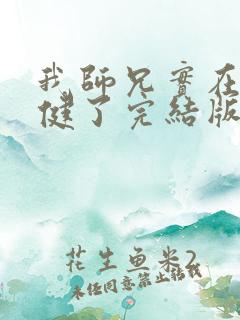 我師兄實在
健了完結版
花生鱼米2
未经同意禁止转载